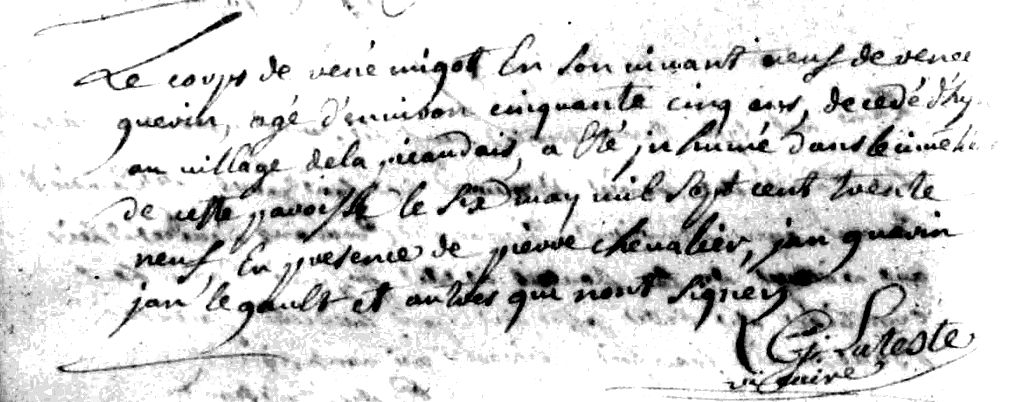 Le corps de rené migot En son vivant veuf de renee
guerin, agé d'environ cinquante cinq ans, decedé d'hy
au village dela picaudais, a Eté inhumé dans le cimeti
de cette paroisse le Six may mil Sept cent trente
neuf, En presence de pierre chevalier, jan guerin
jan le gault et autres qui n'ont Signer
G. Lateste
vicaire